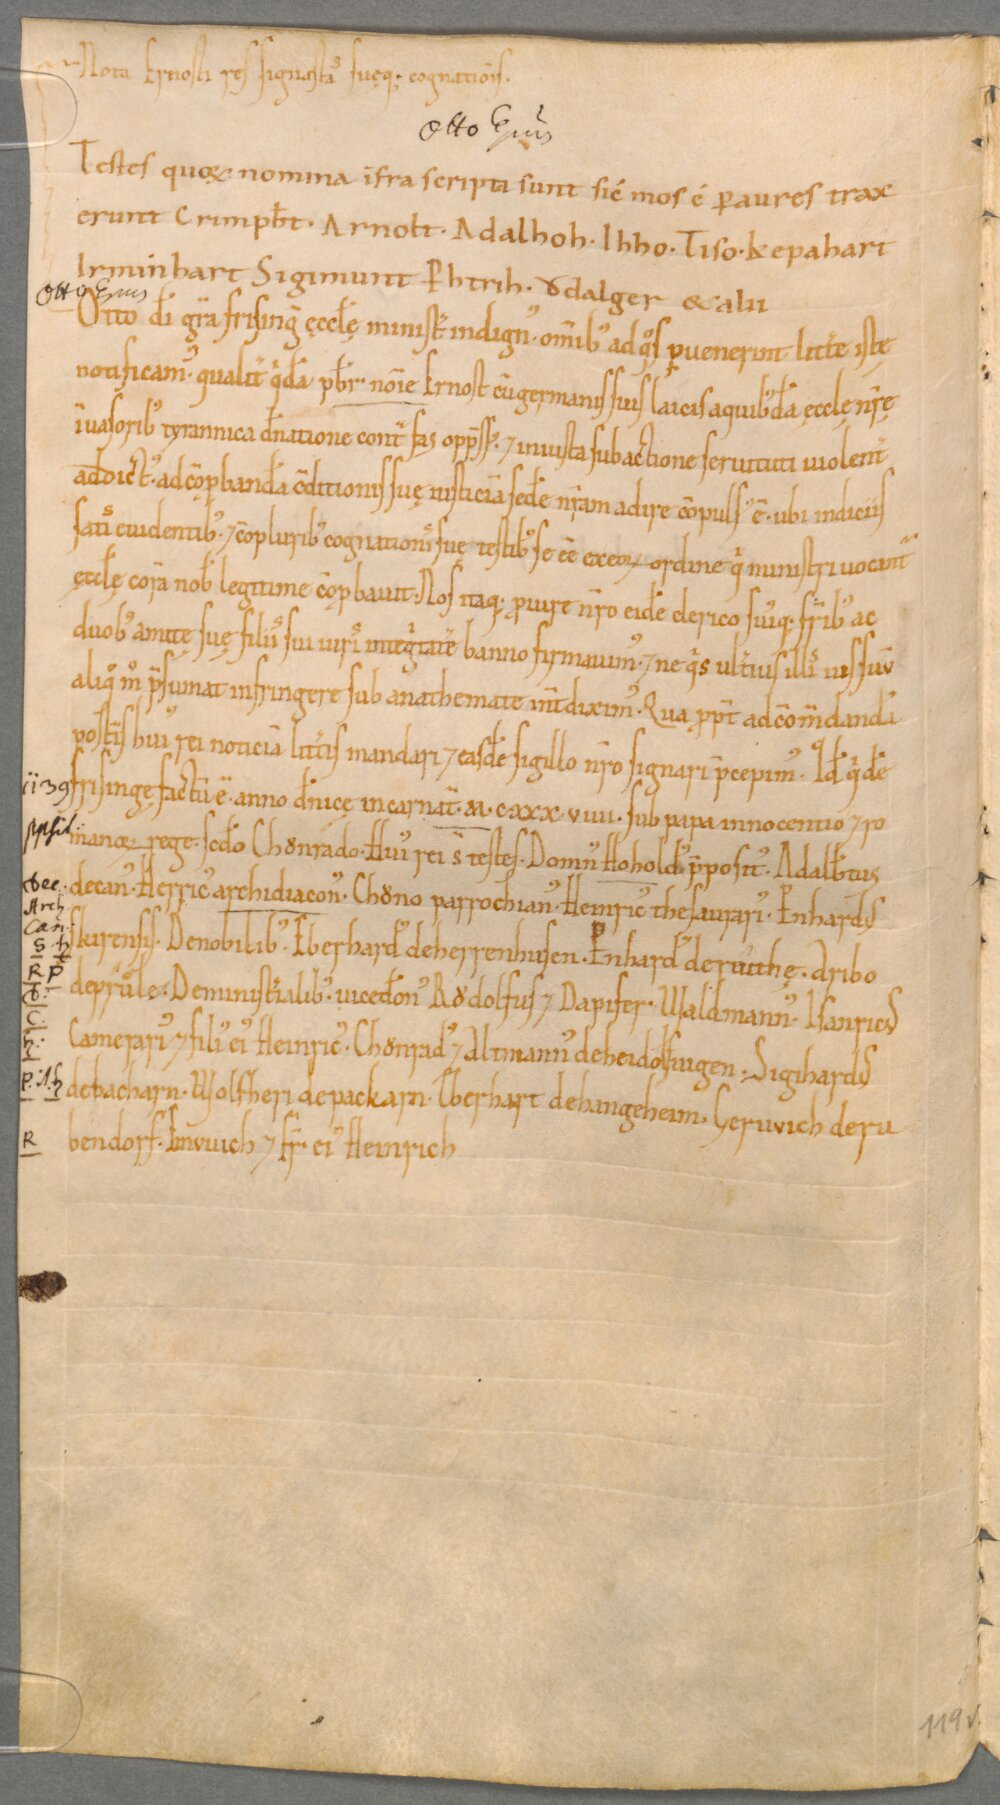 Nota Ernosti res signast᷒a suęq; cognationis.
Otto Epūs
Testes quoꝝ nomina īfra scripta sunt sic̄ mos ē ꝑ aures trax
erunt Crimpb̄t · Arnolt · Adalhoh · Ihho · Tiso · kepahart
Irminhart Sigimunt Ehtrih · Vdalger & alii
Otto Epūs
Otto dī gr̄a frisinḡ ęcclę minist̄ indign᷒ · om̄ib᷒ ad qͦs ꝑuenerint litt̄e istę
notificam᷒ · qualit̄ qͥdā pb̄r noīe Ernost cū germanis suis laicis a quib᷒dā ęcclę nr̄ę
īuasorib᷒ tyrannica dn̄atione cont͛ fas opp̄ss᷒ · ⁊ iniusta subactione seruituti uiolent͛
addict᷒ · ad cōp̱bandā cōditionis suę iusticiā sedē nr̄am adire cōpuls᷒ ē · ubi indiciis
satis euidentib᷒ · ⁊ cōplurib᷒ cognationis suę testib᷒ se ēē ex eoꝝ ordine qͥ ministri uocant͛
ęcclę corā nob̄ legitime cōp̱bauit · Nos itaq; p̱ iure nr̄o eidē clerico suisq; fr̄ib᷒ ac
duob᷒ amitę suę filiis sui iuris integͥtatē banno firmauim᷒ · ⁊ ne qͥs ult̄ius illis ius suū
aliqͦ mͦ p̄sumat infringere sub anathemate int̄dixim᷒ · Qua p̱pt̄ ad cōm̄dandā
post̄is hui᷒ rei noticiā litt̄is mandari ⁊ easdē sigillo nr̄o signari p̄cepim᷒ · Id qͥdē
1139 frisingę factū ē · anno dn̄icę incarnat̄ · M · C · XXX · VIIII · sub papa innocentio ⁊ ro
manoꝝ rege · scd̄o Chonrado · Hui᷒ rei s̄ testes · Domn᷒ Hohold᷒ p̄posit᷒ · Adalb̄tus
Dec. decan᷒ · Herric᷒ archidiacon᷒ · Chǒno parrochian᷒ · Heinric᷒ thesaurari᷒ · Enhard᷒
Arch.
Can. skirensis · De nobilib᷒ · Eberhard᷒ de herrenhusen · Enhard᷒ de růthę · Aribo
S. h
R P de průle · De ministͥalib᷒ · uicedōn᷒ Rǒdolfus ⁊ Dapifer · Waldmann᷒ · Kanric᷒
C. Camerari᷒ ⁊ fili᷒ ei᷒ Heinric᷒ · Chǒnrad᷒ ⁊ Altmann᷒ de heidolfingen · Sigihard᷒
P. A. h de bacharn · Wolfheri de packarn · Eberhart de hangeheim · Geruuich de ru
R bendorf · Imuuich ⁊ fr̄ ei᷒ Heinrich
119v.